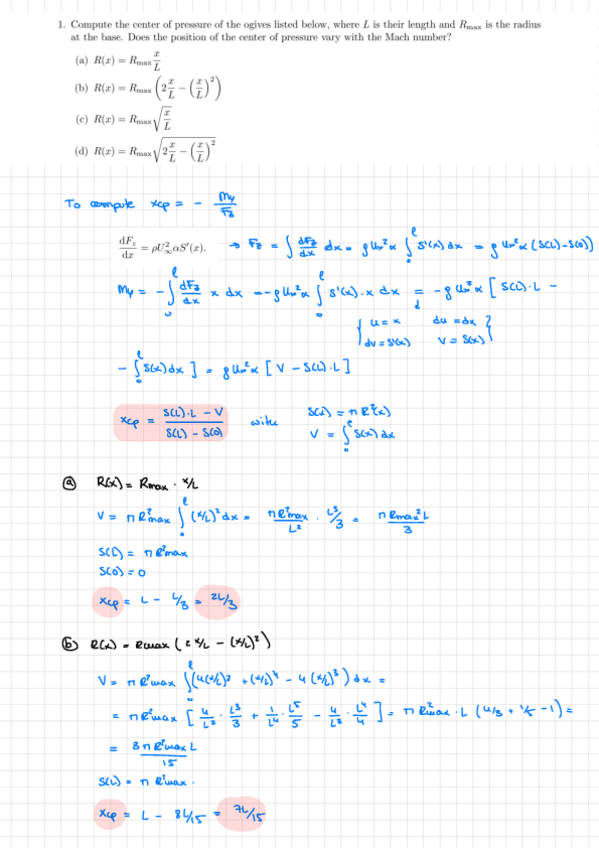 1. Compute the center of pressure of the ogives listed below, where L is their length and Rmax is the radius
at the base. Does the position of the center of pressure vary with the Mach number?
(a) R(x) = Rmax x/L
(b) R(x) = Rmax (2 x/L − (x/L)²)
(c) R(x) = Rmax √(x/L)
(d) R(x) = Rmax √(2 x/L − (x/L)²)
To compute xcp = − My/Fz
dFz/dx = ρU∞²αS′(x). → Fz = ∫ dFz/dx dx = ρU∞²α ∫₀ˡ S'(x) dx = ρU∞²α (S(L)−S(0))
My = −∫₀ˡ dFz/dx x dx = −ρU∞²α ∫₀ˡ S'(x)·x dx = −ρU∞²α [S(L)·L −
{ u = x du = dx
dv = S'(x) v = S(x) }
− ∫₀ˡ S(x)dx ] = ρU∞²α [V − S(L)·L]
xcp = (S(L)·L − V)/(S(L) − S(0)) with S(x) = π R²(x)
V = ∫₀ˡ S(x) dx
(a) R(x) = Rmax · x/L
V = π R²max ∫₀ˡ (x/L)² dx = πR²max/L² · L³/3 = πRmax²L/3
S(L) = π R²max
S(0) = 0
xcp = L − L/3 = 2L/3
(b) R(x) = Rmax (2 x/L − (x/L)²)
V = π R²max ∫₀ˡ (4(x/L)² + (x/L)⁴ − 4(x/L)³) dx =
= πR²max [4/L² · L³/3 + 1/L⁴ · L⁵/5 − 4/L³ · L⁴/4] = π R²max · L (4/3 + 1/5 − 1) =
= 8πR²max L/15
S(L) = π R²max.
xcp = L − 8L/15 = 7L/15